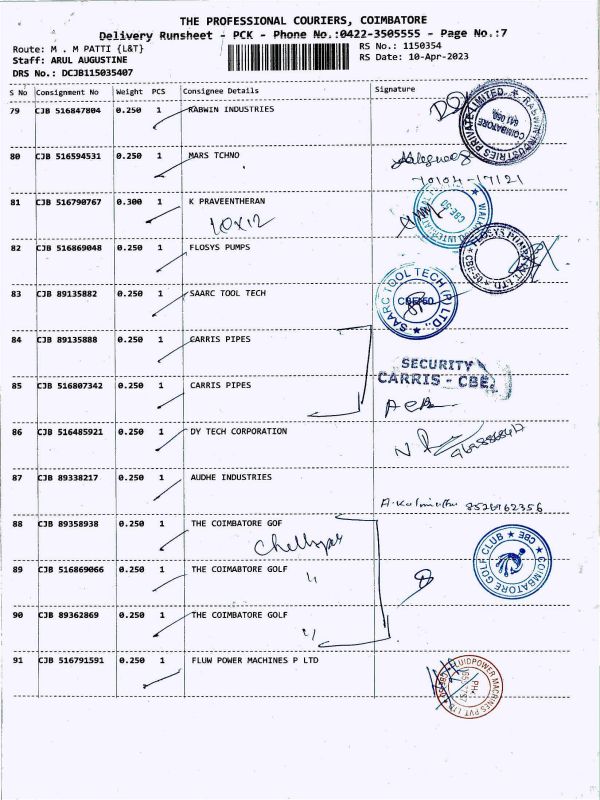 THE PROFESSIONAL COURIERS, COIMBATORE
Delivery Runsheet - PCK - Phone No.:0422-3505555 - Page No.:7
Route: M . M PATTI {L&T}
RS No.: 1150354
Staff: ARUL AUGUSTINE
RS Date: 10-Apr-2023
DRS No.: DCJB115035407
S No Consignment No Weight PCS Consignee Details Signature
79 CJB 516847804 0.250 1 RABWIN INDUSTRIES
RABWIN INDUSTRIES PRIVATE LIMITED
COIMBATORE
641 050
80 CJB 516594531 0.250 1 MARS TCHNO
81 CJB 516790767 0.300 1 K PRAVEENTHERAN
10x12
CBE-50
82 CJB 516869048 0.250 1 FLOSYS PUMPS
FLOSYS PUMPS LTD.
83 CJB 89135882 0.250 1 SAARC TOOL TECH
SAARC TOOL TECH (P) LTD.,
CBE-60
84 CJB 89135888 0.250 1 CARRIS PIPES
SECURITY
CARRIS - CBE
85 CJB 516807342 0.250 1 CARRIS PIPES
86 CJB 516485921 0.250 1 DY TECH CORPORATION
87 CJB 89338217 0.250 1 AUDHE INDUSTRIES
8526962356
88 CJB 89358938 0.250 1 THE COIMBATORE GOF
COIMBATORE GOLF CLUB
CBE
89 CJB 516869066 0.250 1 THE COIMABTORE GOLF
90 CJB 89362869 0.250 1 THE COIMBATORE GOLF
91 CJB 516791591 0.250 1 FLUW POWER MACHINES P LTD
FLUIDPOWER MACHINES PVT. LTD